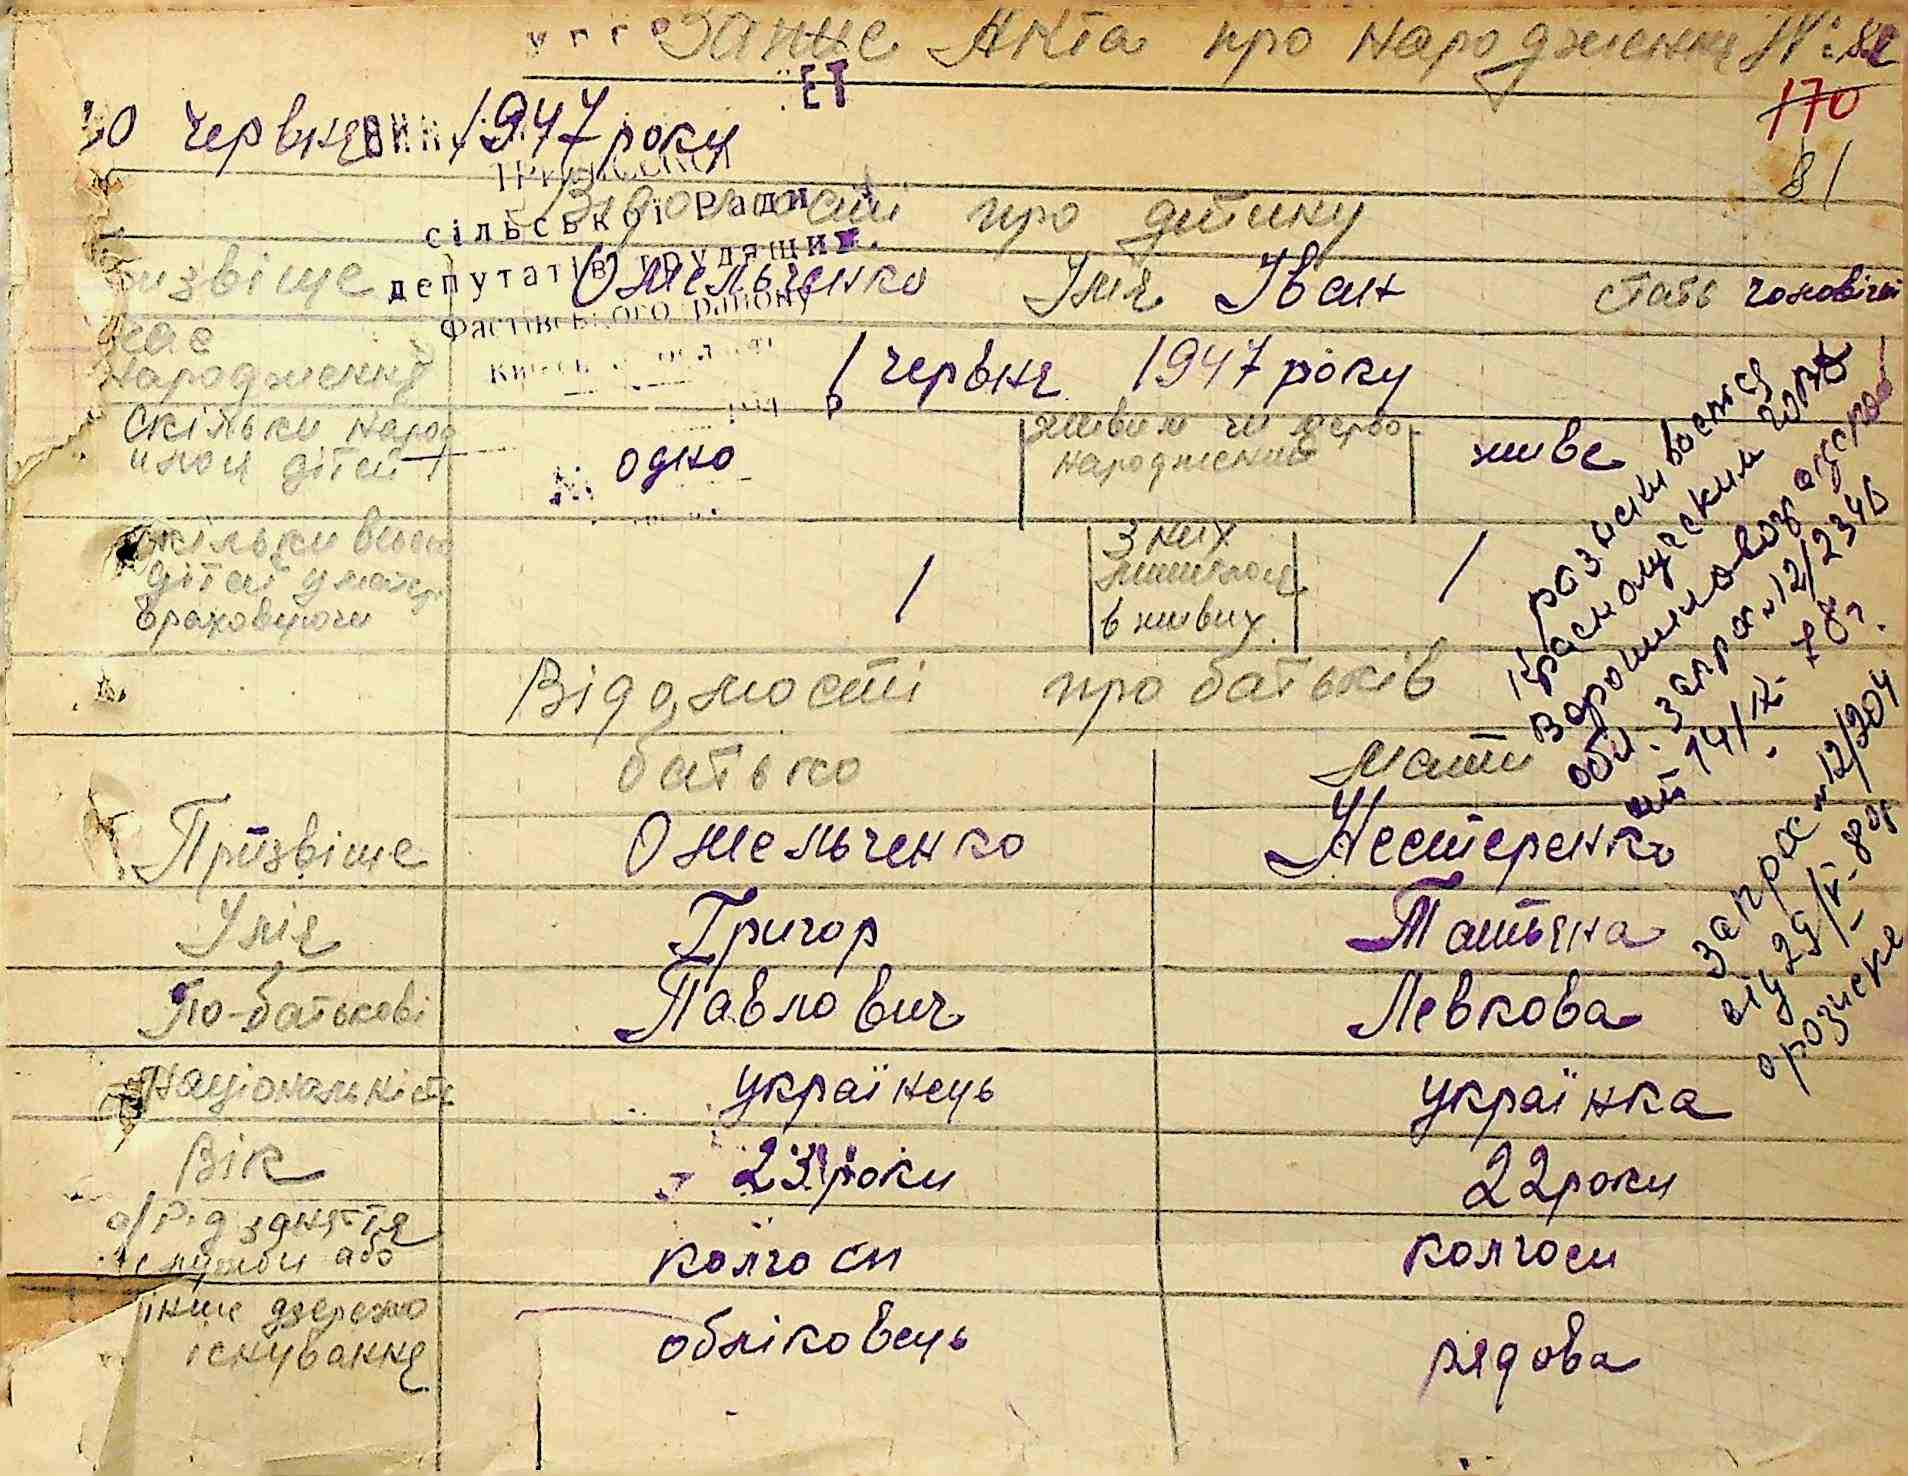 Запис Акта про народження №
170
81
10 червня 1947 року
сільської Ради
депутатів трудящих
Фастівського району
Відомості про дитину
Призвіще Омельченко Імя Іван стать чоловіча
Час народження 1 червня 1947 року
Скільки народ дітей одно живим чи мертво народжений живе
Скільки всього дітей у матері враховуючи 1 з них лишилося в живих 1
Відомості про батьків
батько мати
Призвіще Омельченко Нестеренко
Імя Григор Татьяна
По-батькові Павлович Левкова
Національність українець українка
Вік 23 роки 22 роки
а/ Рід заняття служби або колгосп колгосп
інше джерело існування обліковець рядова
розыскивается
Краснолучским ГОВД
Ворошиловоградской
обл. запрос № 12/2346
от 14/IX-78г.
Запрос № 12/204
від 29/V-80г
о розиске